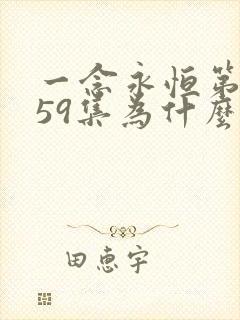 一念永恒第
59集為什麼
田惠宇